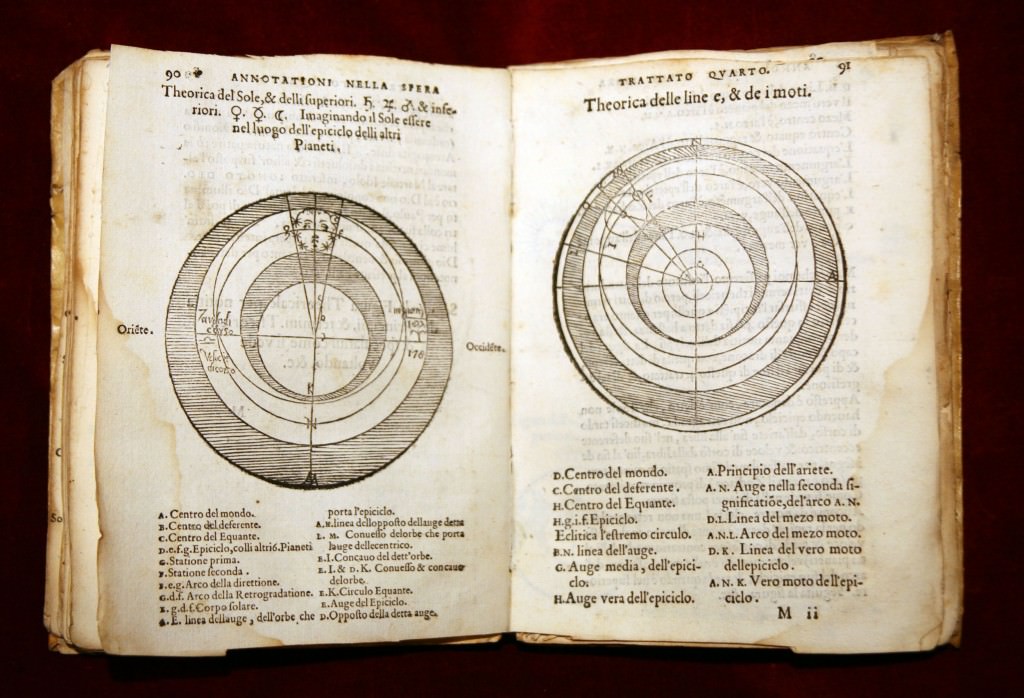 90
ANNOTATIONI NELLA SPERA
Theorica del Sole, & delli superiori. ♄. ♃. ♂ & infe-
riori. ♀. ☿. ☾. Imaginando il Sole essere
nel luogo dell'epiciclo delli altri
Pianeti.
Oriẽte.
Occidẽte.
A. Centro del mondo.
B. Centro del deferente.
C. Centro del Equante.
D.e.f.g. Epiciclo, colli altri 6. Pianeti
G. Statione prima.
F. Statione seconda.
E.e.g. Arco della direttione.
G.d.f. Arco della Retrogradatione.
E.g.d.f. Corpo solare.
A.E. linea dellauge, dell'orbe che
porta l'epiciclo.
A.N. linea dellopposto dellauge detta
L. M. Conuesso delorbe che porta
lauge dellecentrico.
E.I. Concauo del dett'orbe.
E.I. & D.K. Conuesso & concauo
delorbe.
E.K. Circulo Equante.
E. Auge del Epiciclo.
D. Opposto della detta auge.
TRATTATO QVARTO.
91
Theorica delle line e, & de i moti.
D. Centro del mondo.
C. Centro del deferente.
H. Centro del Equante.
H.g.i.f. Epiciclo.
Eclitica l'estremo circulo.
B.N. linea dell'auge.
G. Auge media, dell'epici-
clo.
H. Auge vera dell'epiciclo.
A. Principio dell'ariete.
A. N. Auge nella seconda si-
gnificatiõe, del'arco A. N.
D.L. Linea del mezo moto.
A.N.L. Arco del mezo moto.
D. K. Linea del vero moto
dellepiciclo.
A. N. K. Vero moto dell'epi-
ciclo.
M ii